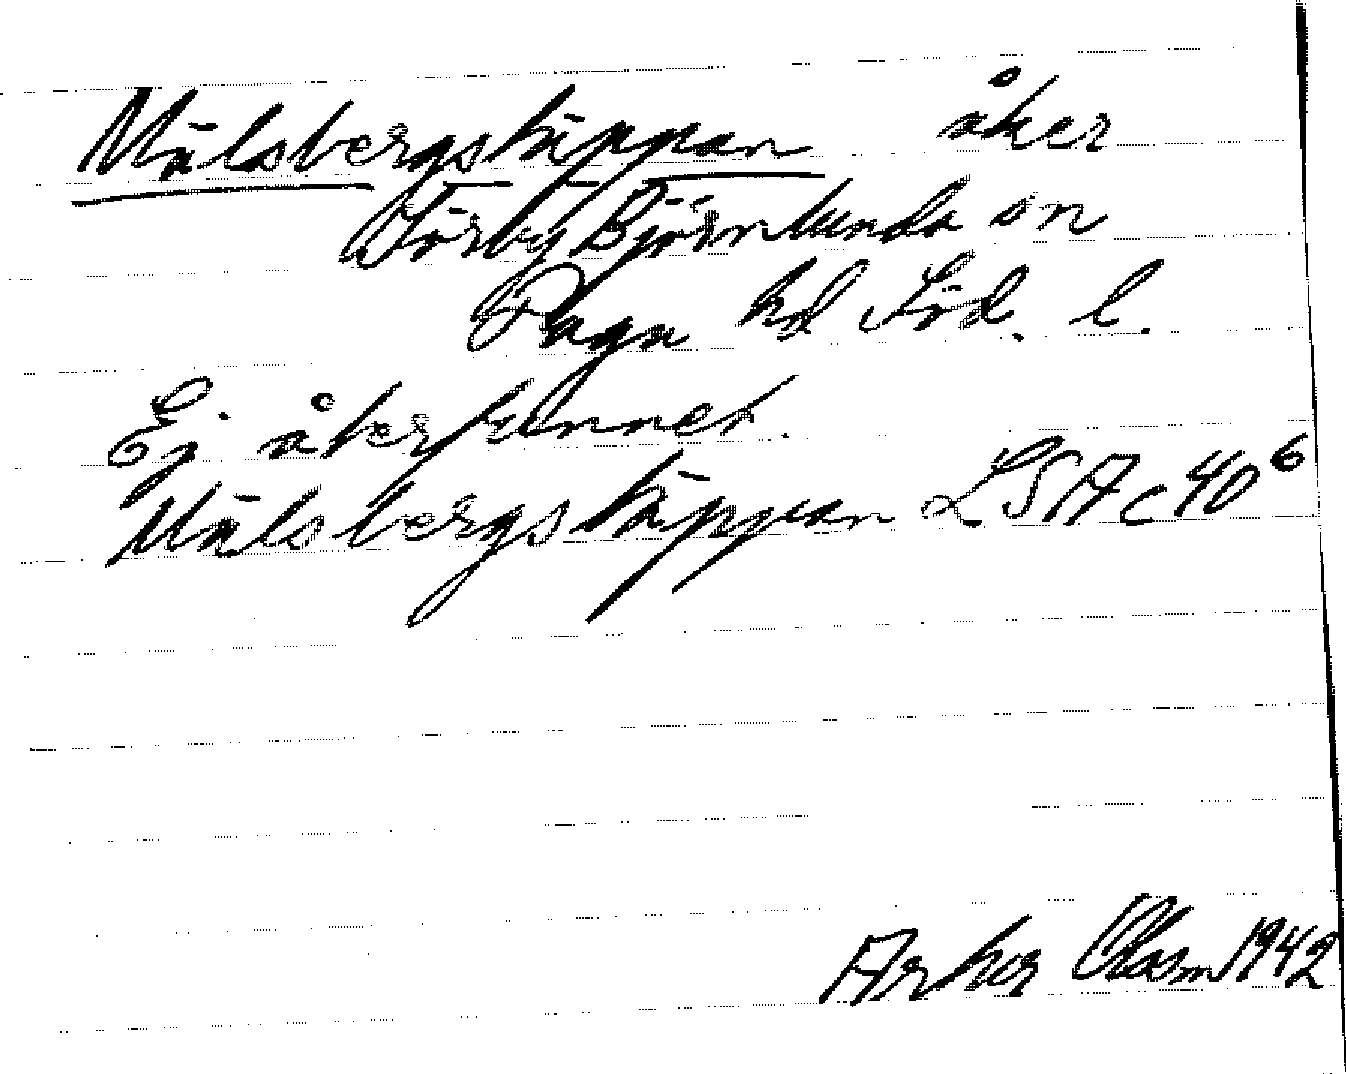 Mälsbergstäppan åker
Törby Björnlunda sn
Daga hd Söd. l.
Ej återfunnet.
Mälsbergstäppan LSA C 40⁶
Arthur Olasm 1942